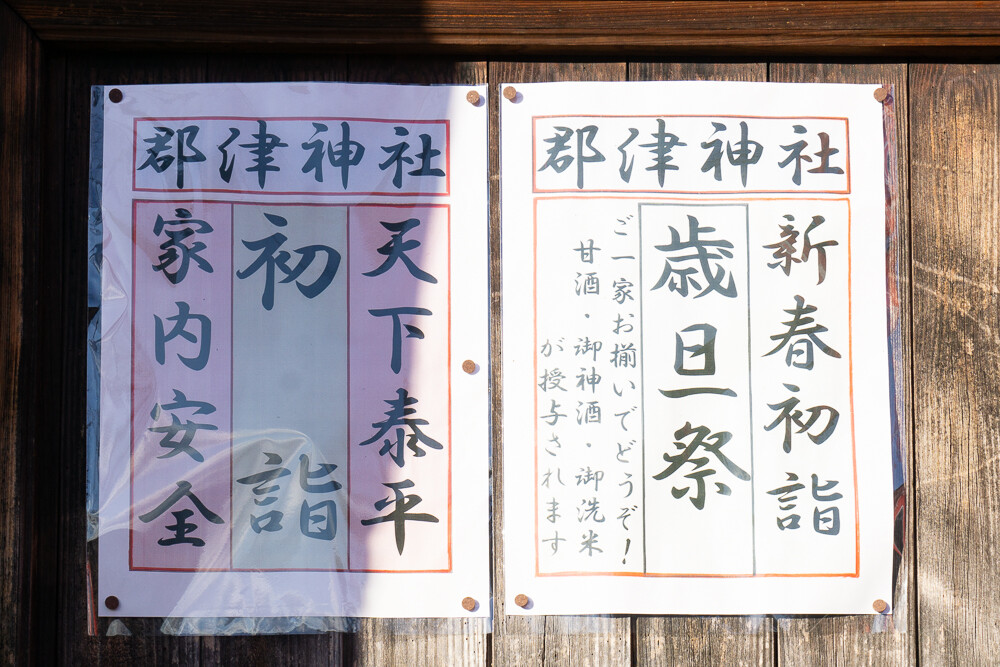 郡津神社
天下泰平
初詣
家内安全
郡津神社
新春初詣
歳旦祭
ご一家お揃いでどうぞ!
甘酒・御神酒・御洗米
が授与されます